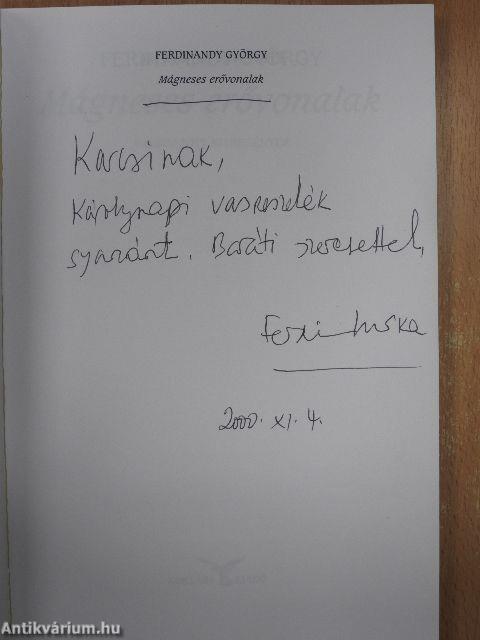 FERDINANDY GYÖRGY
Mágneses erővonalak
Karcsinak,
Károlynapi vasreszelék
gyanánt. Baráti szeretettel,
2000. XI. 4.
Antikvárium.hu